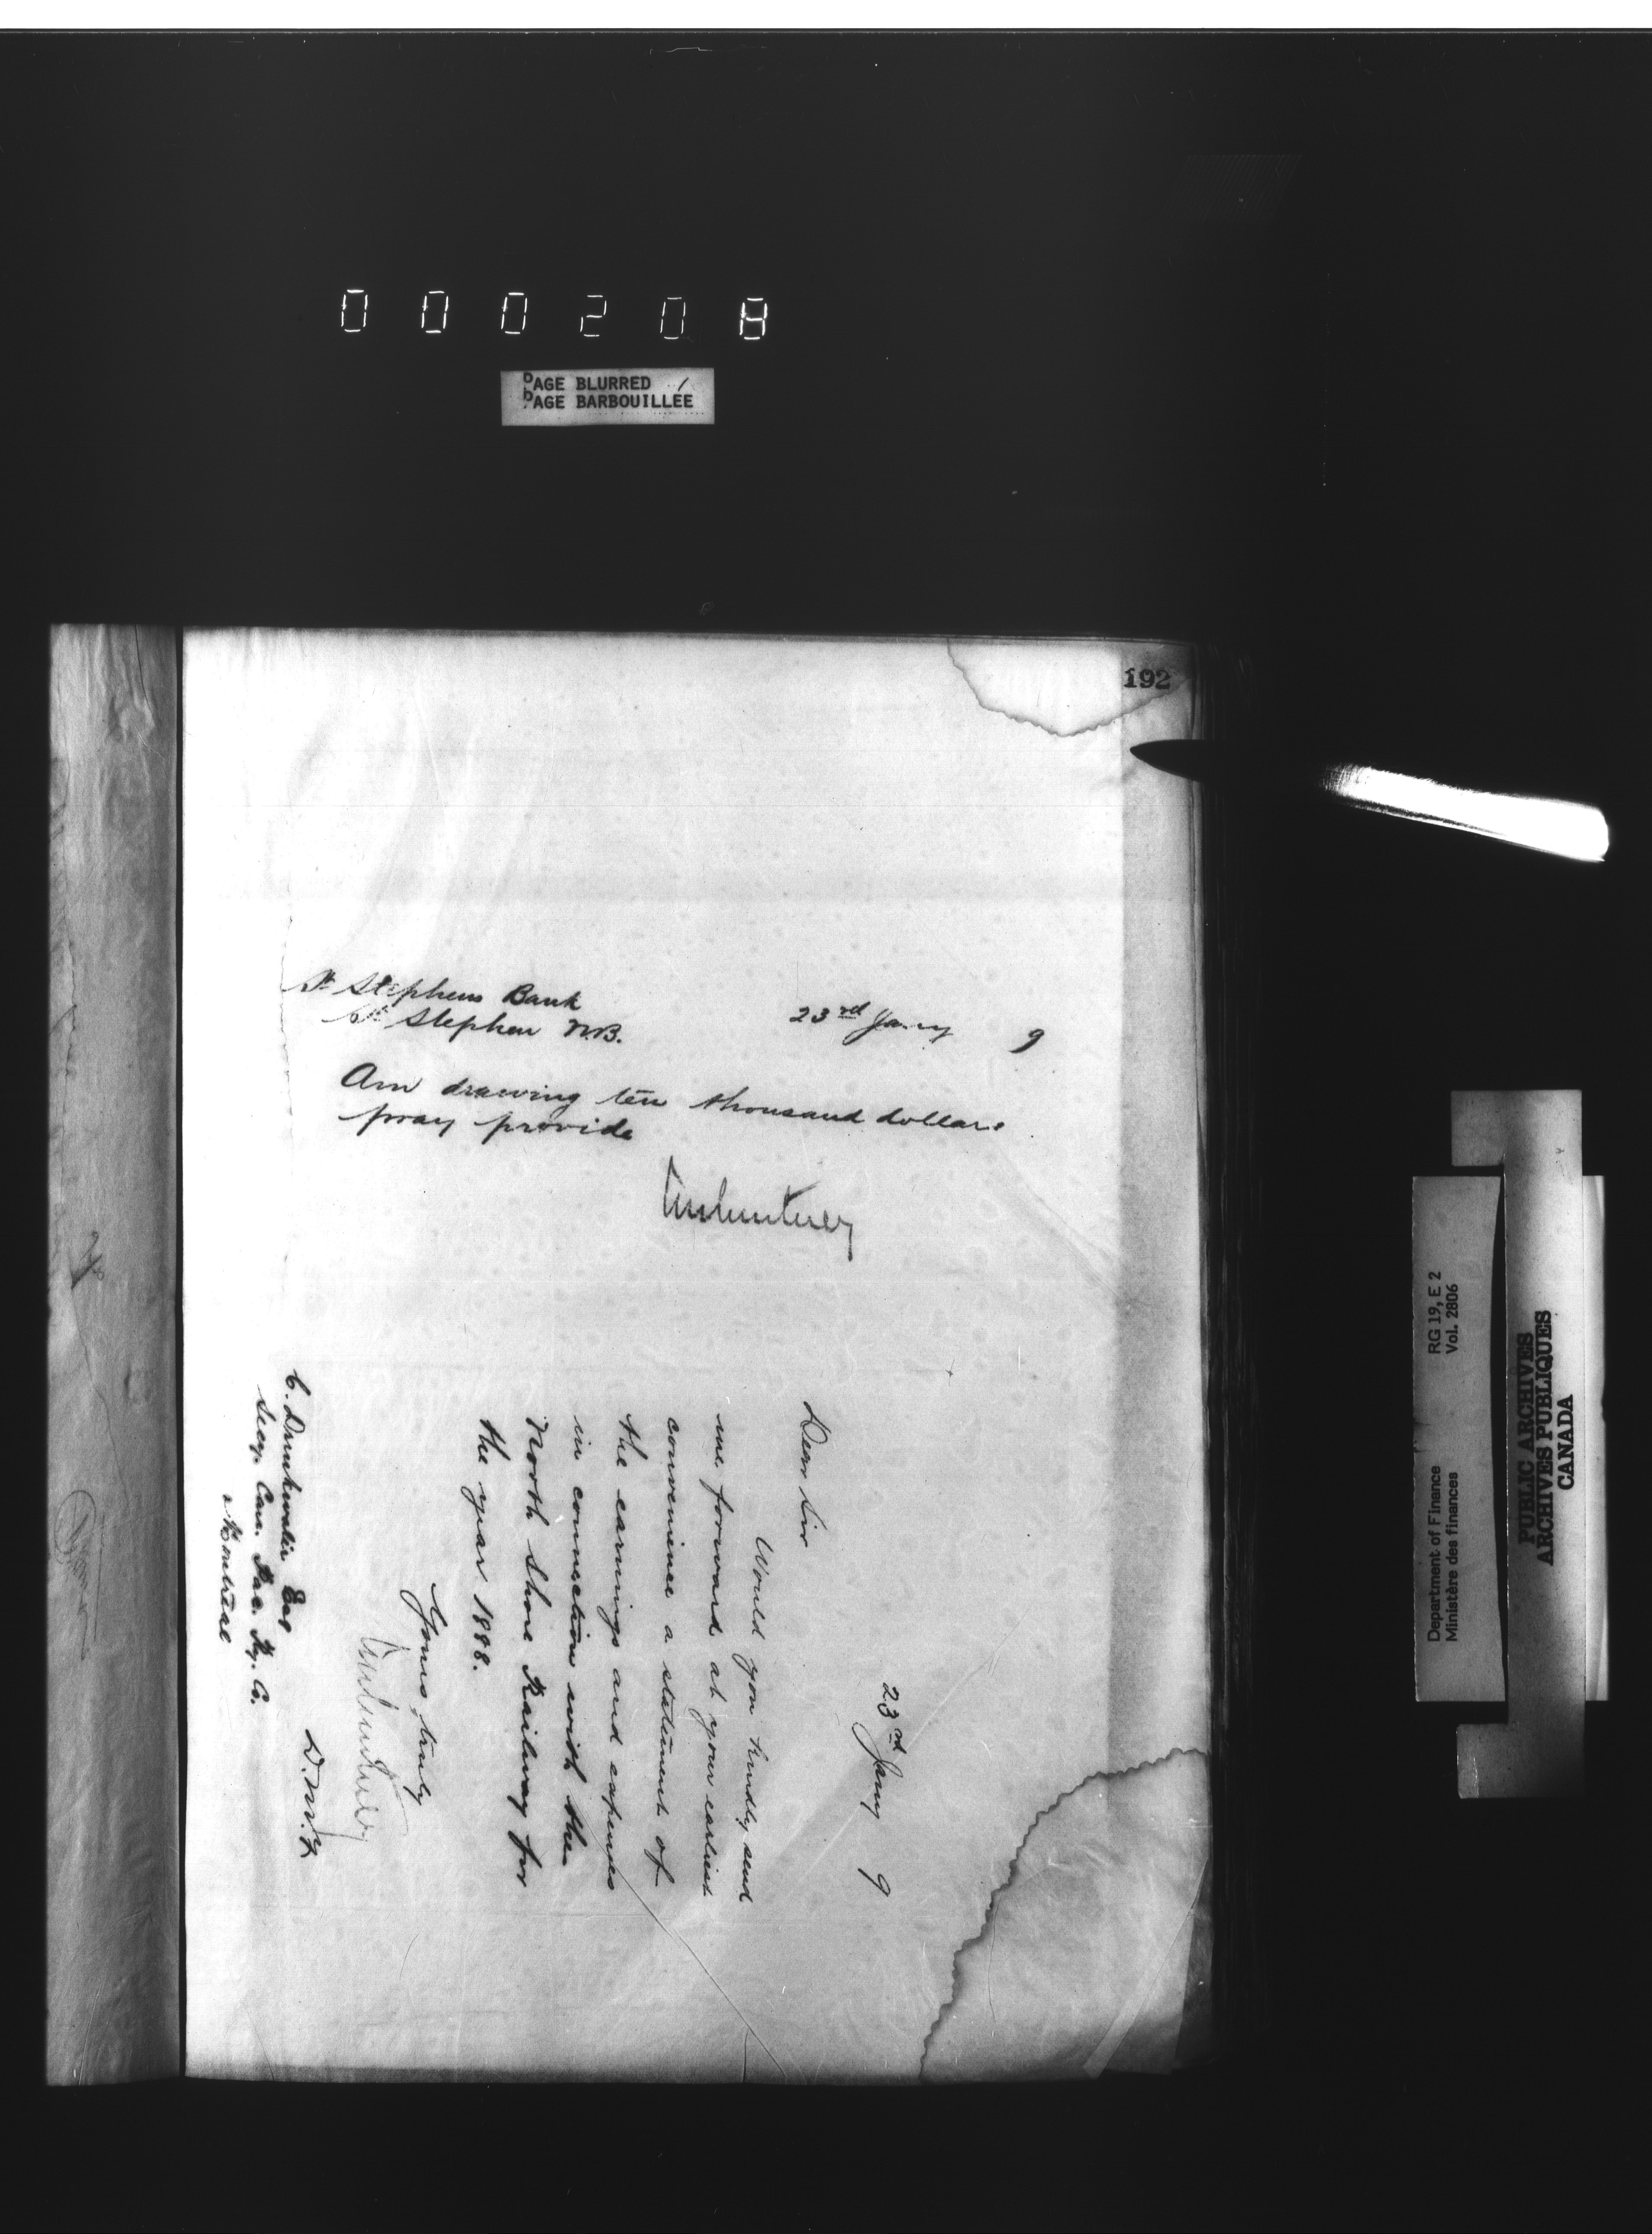 000208
PAGE BLURRED
PAGE BARBOUILLÉE
192
St Stephens Bank
St Stephen N.B.
23rd Jany 9
Am drawing ten thousand dollars
pray provide
23rd Jany 9
Dear Sir
Would you kindly send
me forward at your earliest
convenience a statement of
the earnings and expenses
in connection with the
North Shore Railway for
the year 1888.
Yours truly
D.M.F.
C. Drinkwater Esq
Secy. Can. Pac. Ry. Co.
Montreal
RG 19, E 2
Vol. 2806
Department of Finance
Ministère des finances
PUBLIC ARCHIVES
ARCHIVES PUBLIQUES
CANADA